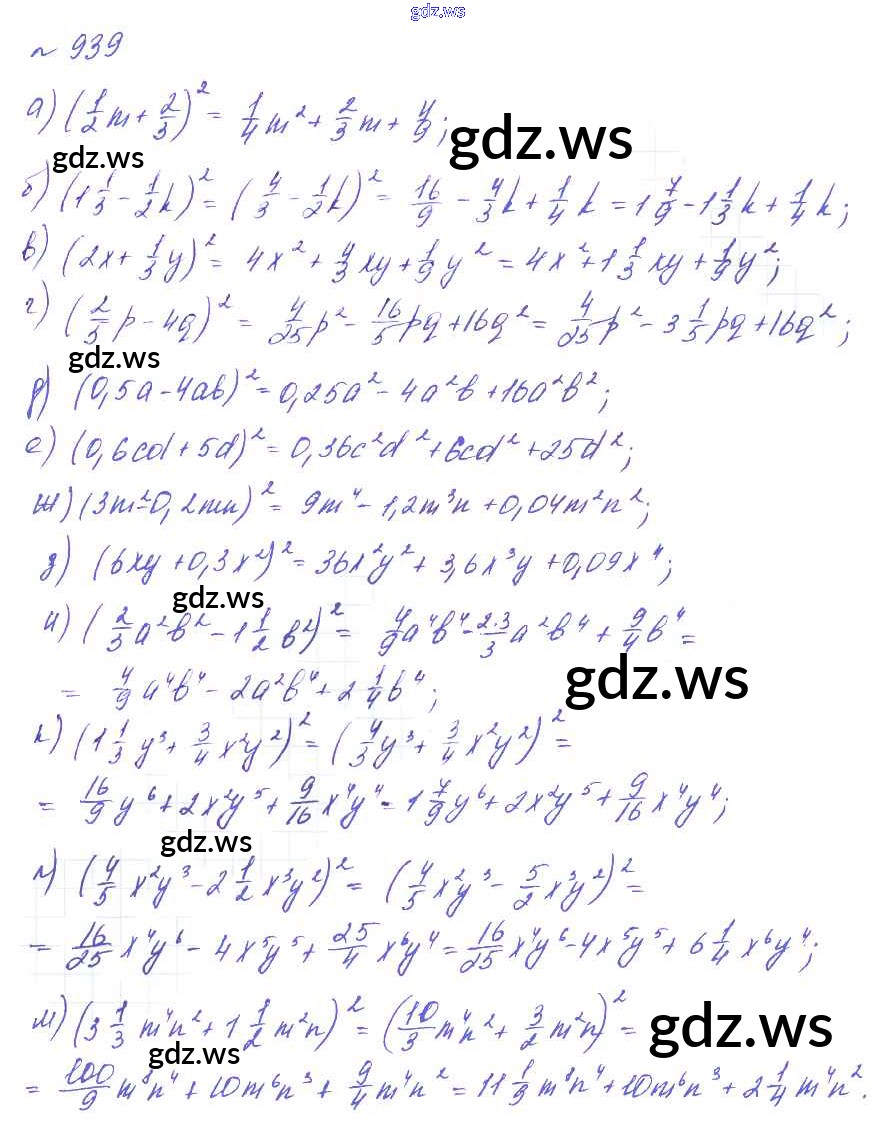 gdz.ws
№ 939
а) (1/2 m + 2/3)² = 1/4 m² + 2/3 m + 4/9;
gdz.ws
gdz.ws
б) (1 1/3 - 1/2 k)² = (4/3 - 1/2 k)² = 16/9 - 4/3 k + 1/4 k = 1 7/9 - 1 1/3 k + 1/4 k;
в) (2x + 1/3 y)² = 4x² + 4/3 xy + 1/9 y² = 4x² + 1 1/3 xy + 1/9 y²;
г) (2/5 p - 4q)² = 4/25 p² - 16/5 pq + 16q² = 4/25 p² - 3 1/5 pq + 16q²;
gdz.ws
д) (0,5a - 4ab)² = 0,25a² - 4a²b + 16a²b²;
е) (0,6cd + 5d)² = 0,36c²d² + 6cd² + 25d²;
ж) (3m² - 0,2mn)² = 9m⁴ - 1,2m³n + 0,04m²n²;
з) (6xy + 0,3x²)² = 36x²y² + 3,6x³y + 0,09x⁴;
gdz.ws
и) (2/3 a²b² - 1 1/2 b²)² = 4/9 a⁴b⁴ - 2·3/3 a²b⁴ + 9/4 b⁴ =
= 4/9 a⁴b⁴ - 2a²b⁴ + 2 1/4 b⁴;
gdz.ws
к) (1 1/3 y³ + 3/4 x²y²)² = (4/3 y³ + 3/4 x²y²)² =
= 16/9 y⁶ + 2x²y⁵ + 9/16 x⁴y⁴ = 1 7/9 y⁶ + 2x²y⁵ + 9/16 x⁴y⁴;
gdz.ws
л) (4/5 x²y³ - 2 1/2 x³y²)² = (4/5 x²y³ - 5/2 x³y²)² =
= 16/25 x⁴y⁶ - 4x⁵y⁵ + 25/4 x⁶y⁴ = 16/25 x⁴y⁶ - 4x⁵y⁵ + 6 1/4 x⁶y⁴;
м) (3 1/3 m⁴n² + 1 1/2 m²n)² = (10/3 m⁴n² + 3/2 m²n)² =
gdz.ws
gdz.ws
= 100/9 m⁸n⁴ + 10m⁶n³ + 9/4 m⁴n² = 11 1/9 m⁸n⁴ + 10m⁶n³ + 2 1/4 m⁴n².